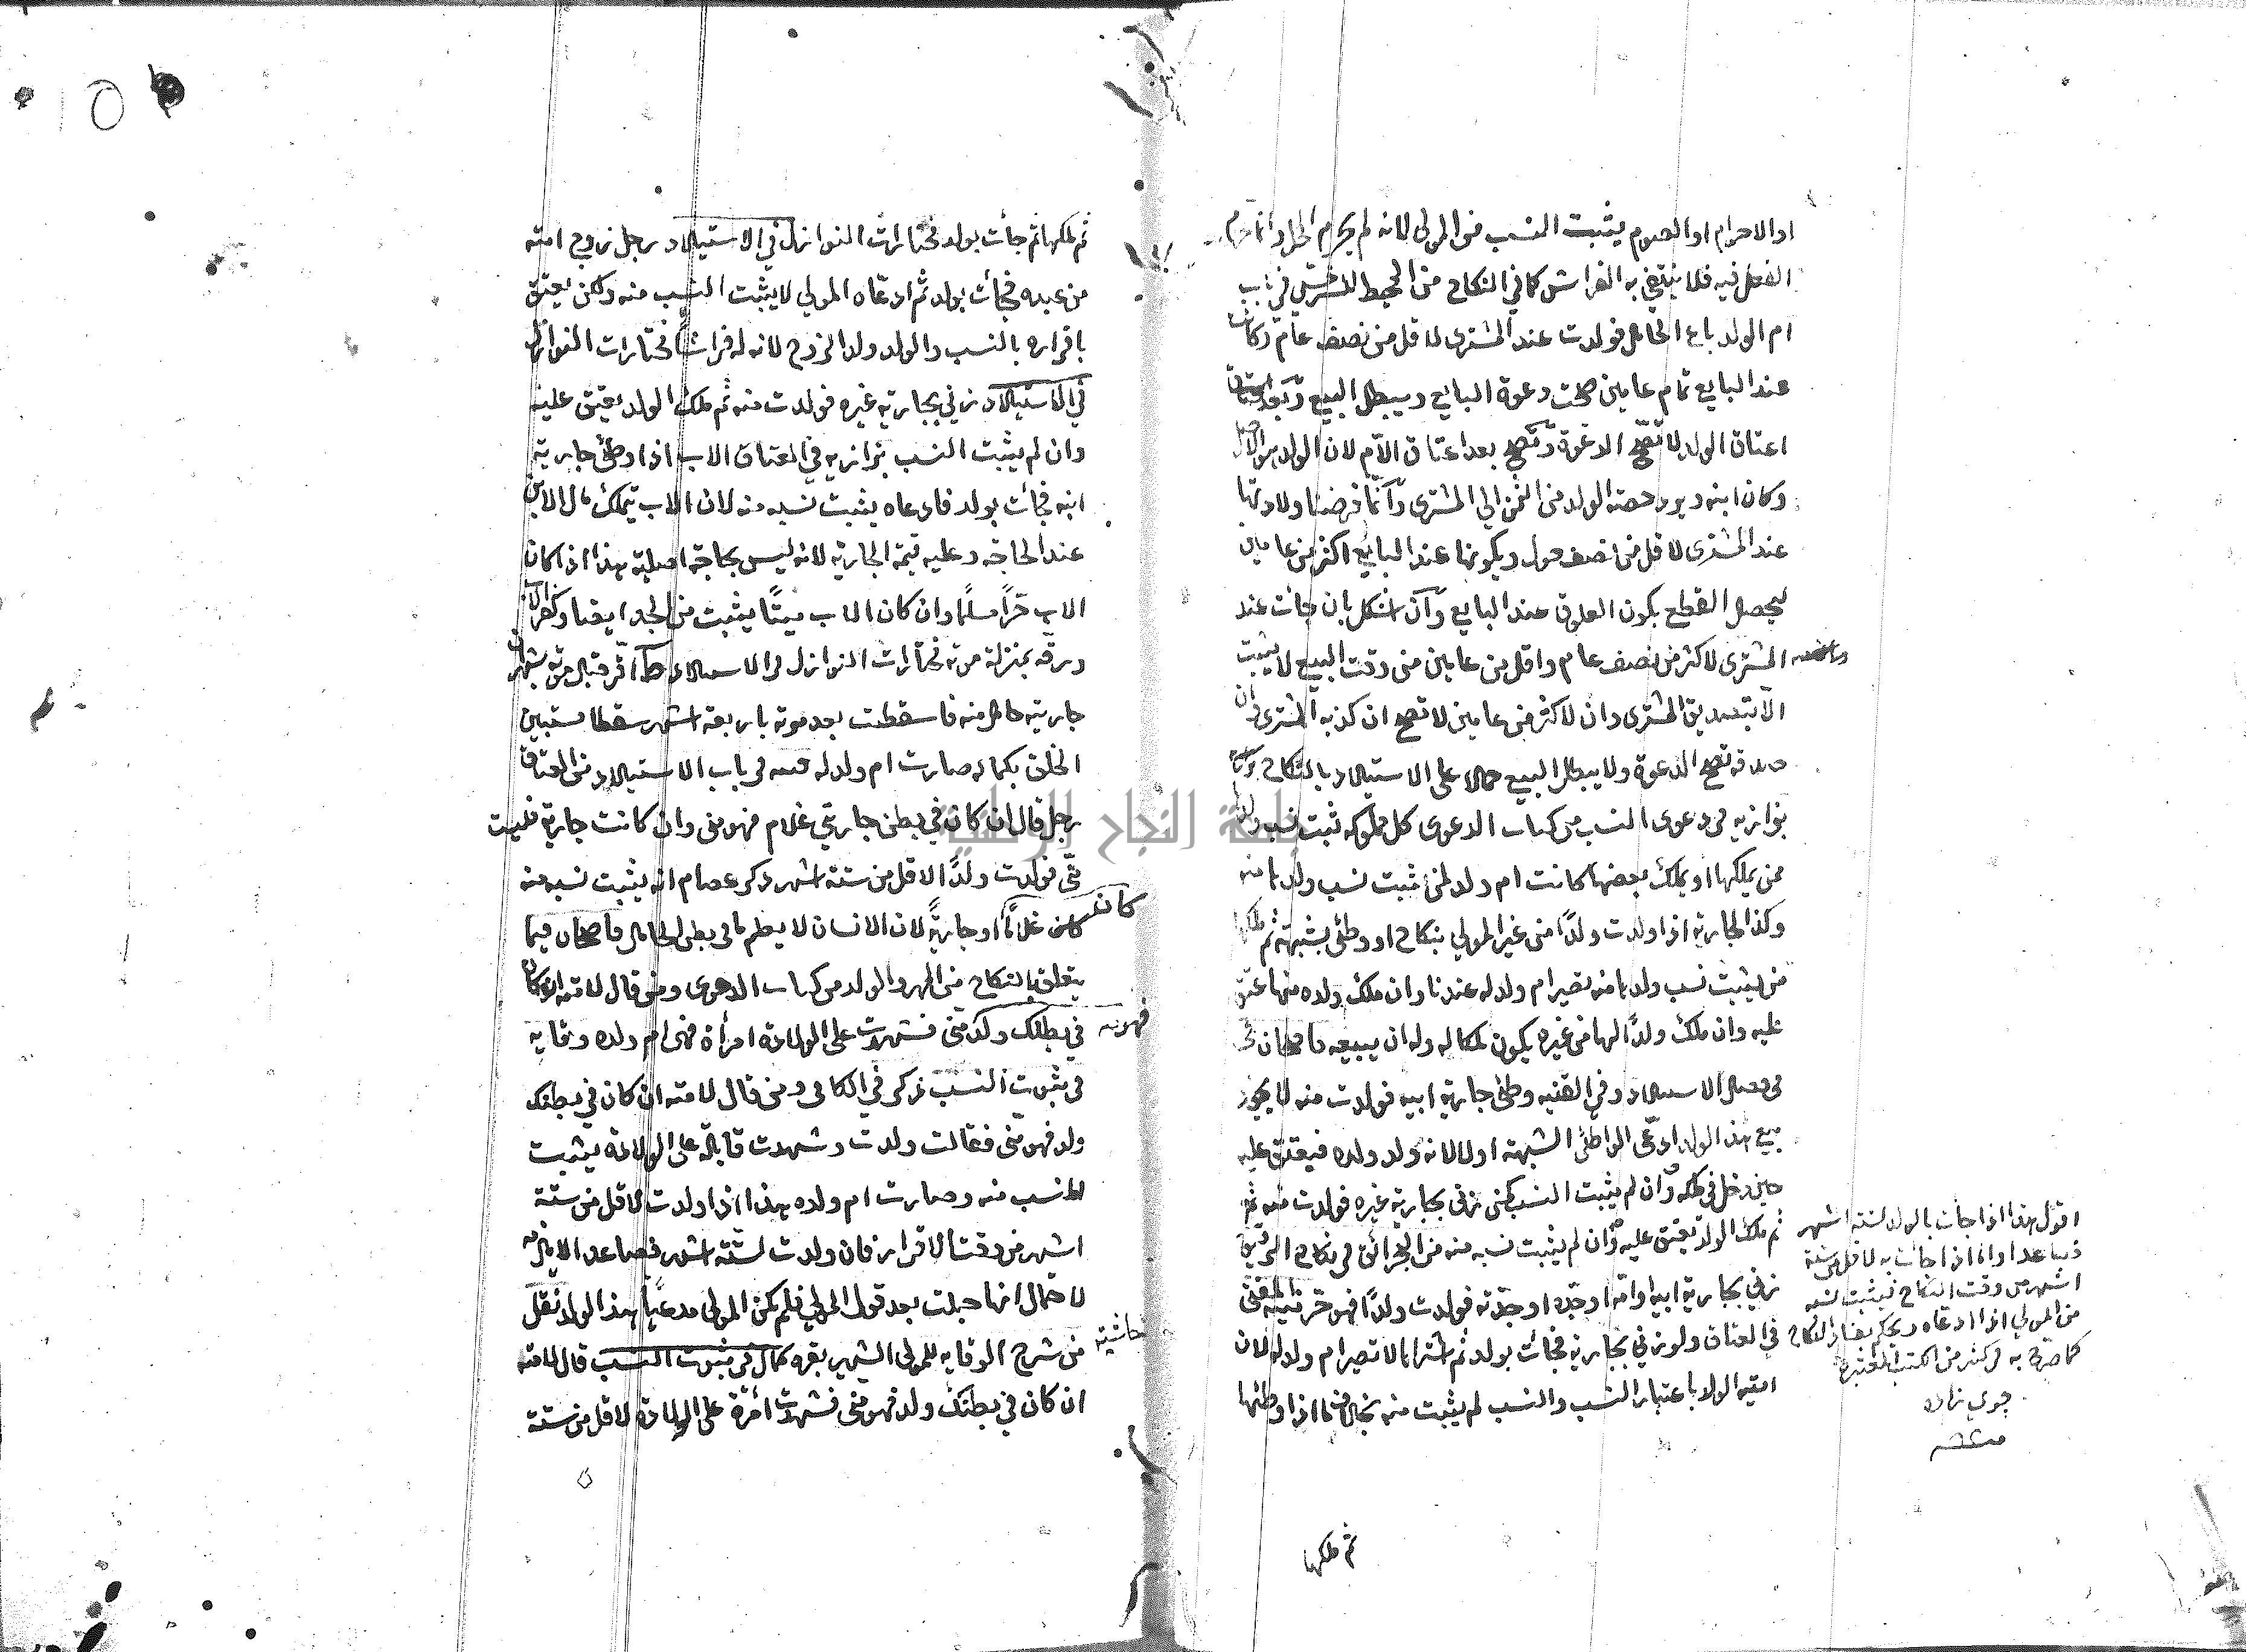 او الاحرام او الصوم يثبت النسب من المولى لانه لم يحرم الحل وانما حرم
الفعل فيه فلا ينتفي به الفراش كما في النكاح من المحيط للسرخسي في باب
ام الولد باع الحامل فولدت عند المشترى لاقل من نصف عام وكان
عند البايع تمام عامين صحت دعوة البايع ويبطل البيع وبعد
اعتاق الولد لا تصح الدعوة وتصح بعد اعتاق الام لان الولد هو الاصل
وكان ابنه ويرد حصة الولد من الثمن الى المشترى وانما فرضنا ولادتها
عند المشترى لاقل من نصف حول ويكونها عند البايع اكثر من عامين
ليحصل القطع بكون العلوق عند البايع وان اشكل بان جائت عند
المشترى لاكثر من نصف عام واقل من عامين من وقت البيع لا يثبت
الا بتصديق المشترى وان لاكثر من عامين لا تصح ان كذبه المشترى وان
صدقه تصح الدعوة ولا يبطل البيع حملا على الاستيلاد بالنكاح
بزازيه فى دعوى النسب من كتاب الدعوى كل مملوكة ثبت نسب ولدها
ممن يملكها او يملك بعضها كانت ام ولد لمن ثبت نسب ولدها منه
وكذا الجارية اذا ولدت ولدًا من غير المولى بنكاح او وطئ بشبهة ثم ملكها
من يثبت نسب ولدها منه تصير ام ولد له عندنا وان ملك ولده منها عتق
عليه وان ملك ولدًا لها من غيره يكون ملكا له وله ان يبيعه قاضخان
فى فصل الاستيلاد وفي القنيه وطئ جارية ابيه فولدت منه لا يجوز
بيع هذا الولد ادعى الواطئ الشبهة او لا لانه ولد ولده فيعتق عليه
حين دخل في ملكه وان لم يثبت النسب كمن زنى بجارية غيره فولدت منه ثم
ثم ملك الولد يعتق عليه وان لم يثبت نسبه منه من البحر الرائق فى نكاح الرقيق
زنى بجارية ابيه او امه او جده او جدته فولدت ولدًا فهو حر قنية المفتى
في العتاق ولو زنى بجارية فجائت بولد ثم اشتراها لا تصير ام ولد له لان
امية الولد باعتبار النسب والنسب لم يثبت منه بخلاف ما اذا وطئها
اقول هذا اذا جائت بالولد لستة اشهر
فصاعدا واما اذا جائت به لاقل من ستة
اشهر من وقت النكاح فيثبت نسبه
من المولى اذا ادعاه ويحكم بفساد النكاح
كما صرح به فى كثير من الكتب المعتبرة
جوي زاده
ثم ملكها
ثم ملكها ثم جائت بولد مختارات النوازل في الاستيلاد رجل زوج امته
من عبده فجائت بولد ثم ادعاه المولى لا يثبت النسب منه ولكن يعتق
باقراره بالنسب والولد ولد الزوج لانه له فراشًا مختارات النوازل
في الاستيلاد زنى بجارية غيره فولدت منه ثم ملك الولد يعتق عليه
وان لم يثبت النسب بزازيه في العتاق الاب اذا وطئ جارية
ابنه فجائت بولد فادعاه يثبت نسبه منه لان الاب تملك مال الابن
عند الحاجة وعليه قيمة الجارية لانه ليس بحاجة اصلية هذا اذا كان
الاب حرًا مسلمًا وان كان الاب ميتًا يثبت من الجد ايضا وكفر الاب
ورقه بمنزلة موته مختارات النوازل فى الاستيلاد اقر قبل موته بشهر ان
جاريته حامل منه فاسقطت بعد موته باربعة اشهر سقطا مستبين
الخلق بكماله صارت ام ولد له قنيه فى باب الاستيلاد من العتاق
رجل قال ان كان في بطن جاريتي غلام فهو منى وان كانت جارية فليست
منّى فولدت ولدًا لاقل من ستة اشهر ذكر عصام انه يثبت نسبه منه
كان
كان غلامًا او جاريةً لان الانسان لا يعلم ما فى بطن الحامل قاضخان فيما
يتعلق بالنكاح من المهر والولد من كتاب الدعوى ومن قال لامته ان كان
في بطنك ولد منى فشهدت على الولادة امرأة فهى ام ولده وقايه
فى ثبوت النسب ذكر في الكافى ومن قال لامته ان كان في بطنك
ولد فهو منى فقالت ولدت وشهدت قابلة على الولادة يثبت
النسب منه وصارت ام ولده هذا اذا ولدت لاقل من ستة
اشهر من وقت الاقرار فان ولدت لستة اشهر فصاعدا لا يلزمه
لاحتمال انها حبلت بعد قول المولى فلم يكن المولى مدعيًا هذا الولد نقل
حاشية
من شرح الوقايه للمولى الشهير بقره كمال فى ثبوت النسب قال لامته
ان كان في بطنك ولد فهو منى فشهدت امرأة على الولادة لاقل من ستة